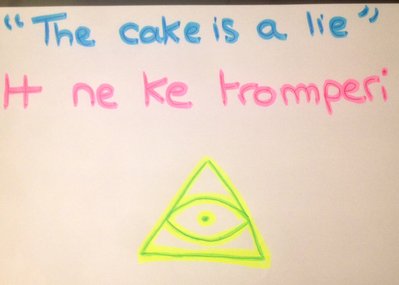 "The cake is a lie"
H ne ke tromperi